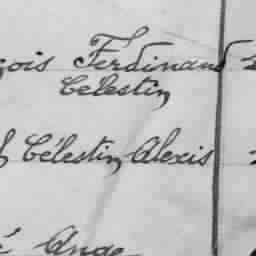 çois Ferdinand
Célestin
Célestin, Alexis
é Ange